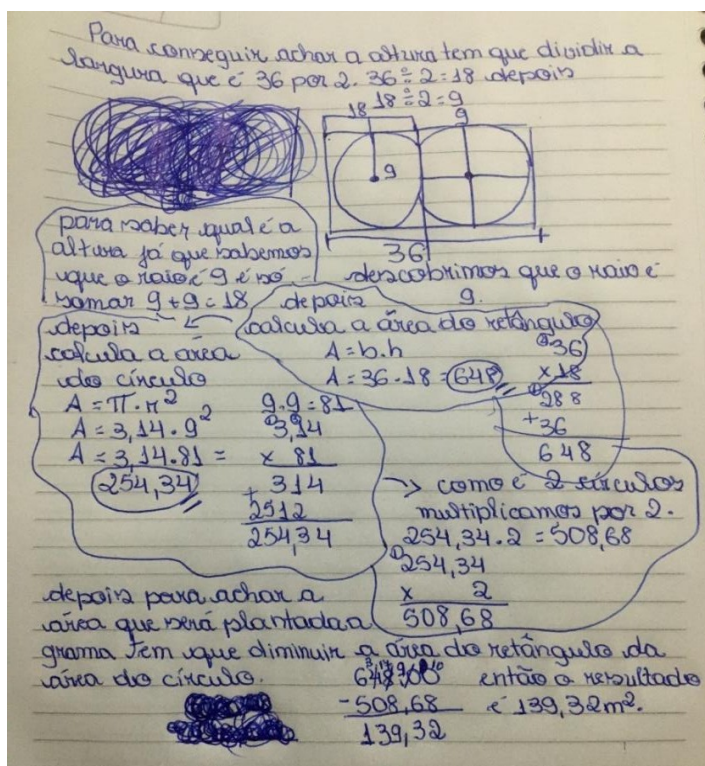 Para conseguir achar a altura tem que dividir a
largura que é 36 por 2. 36÷2=18 depois
18÷2=9
18
9
9
36
para saber qual é a
altura já que sabemos
que o raio é 9 é só
somar 9+9=18
descobrimos que o raio é
9.
depois
calcula a área do retângulo
A=b.h
A=36.18=648
36
x18
288
+36
648
depois
calcula a área
do círculo
A=π.r²
A=3,14.9²
A=3,14.81=
254,34
9.9=81
3,14
x 81
+314
2512
254,34
como é 2 círculos
multiplicamos por 2.
254,34.2=508,68
254,34
x 2
508,68
depois para achar a
área que será plantada a
grama tem que diminuir a área do retângulo da
área do círculo.
648,00
-508,68
139,32
então o resultado
é 139,32m².